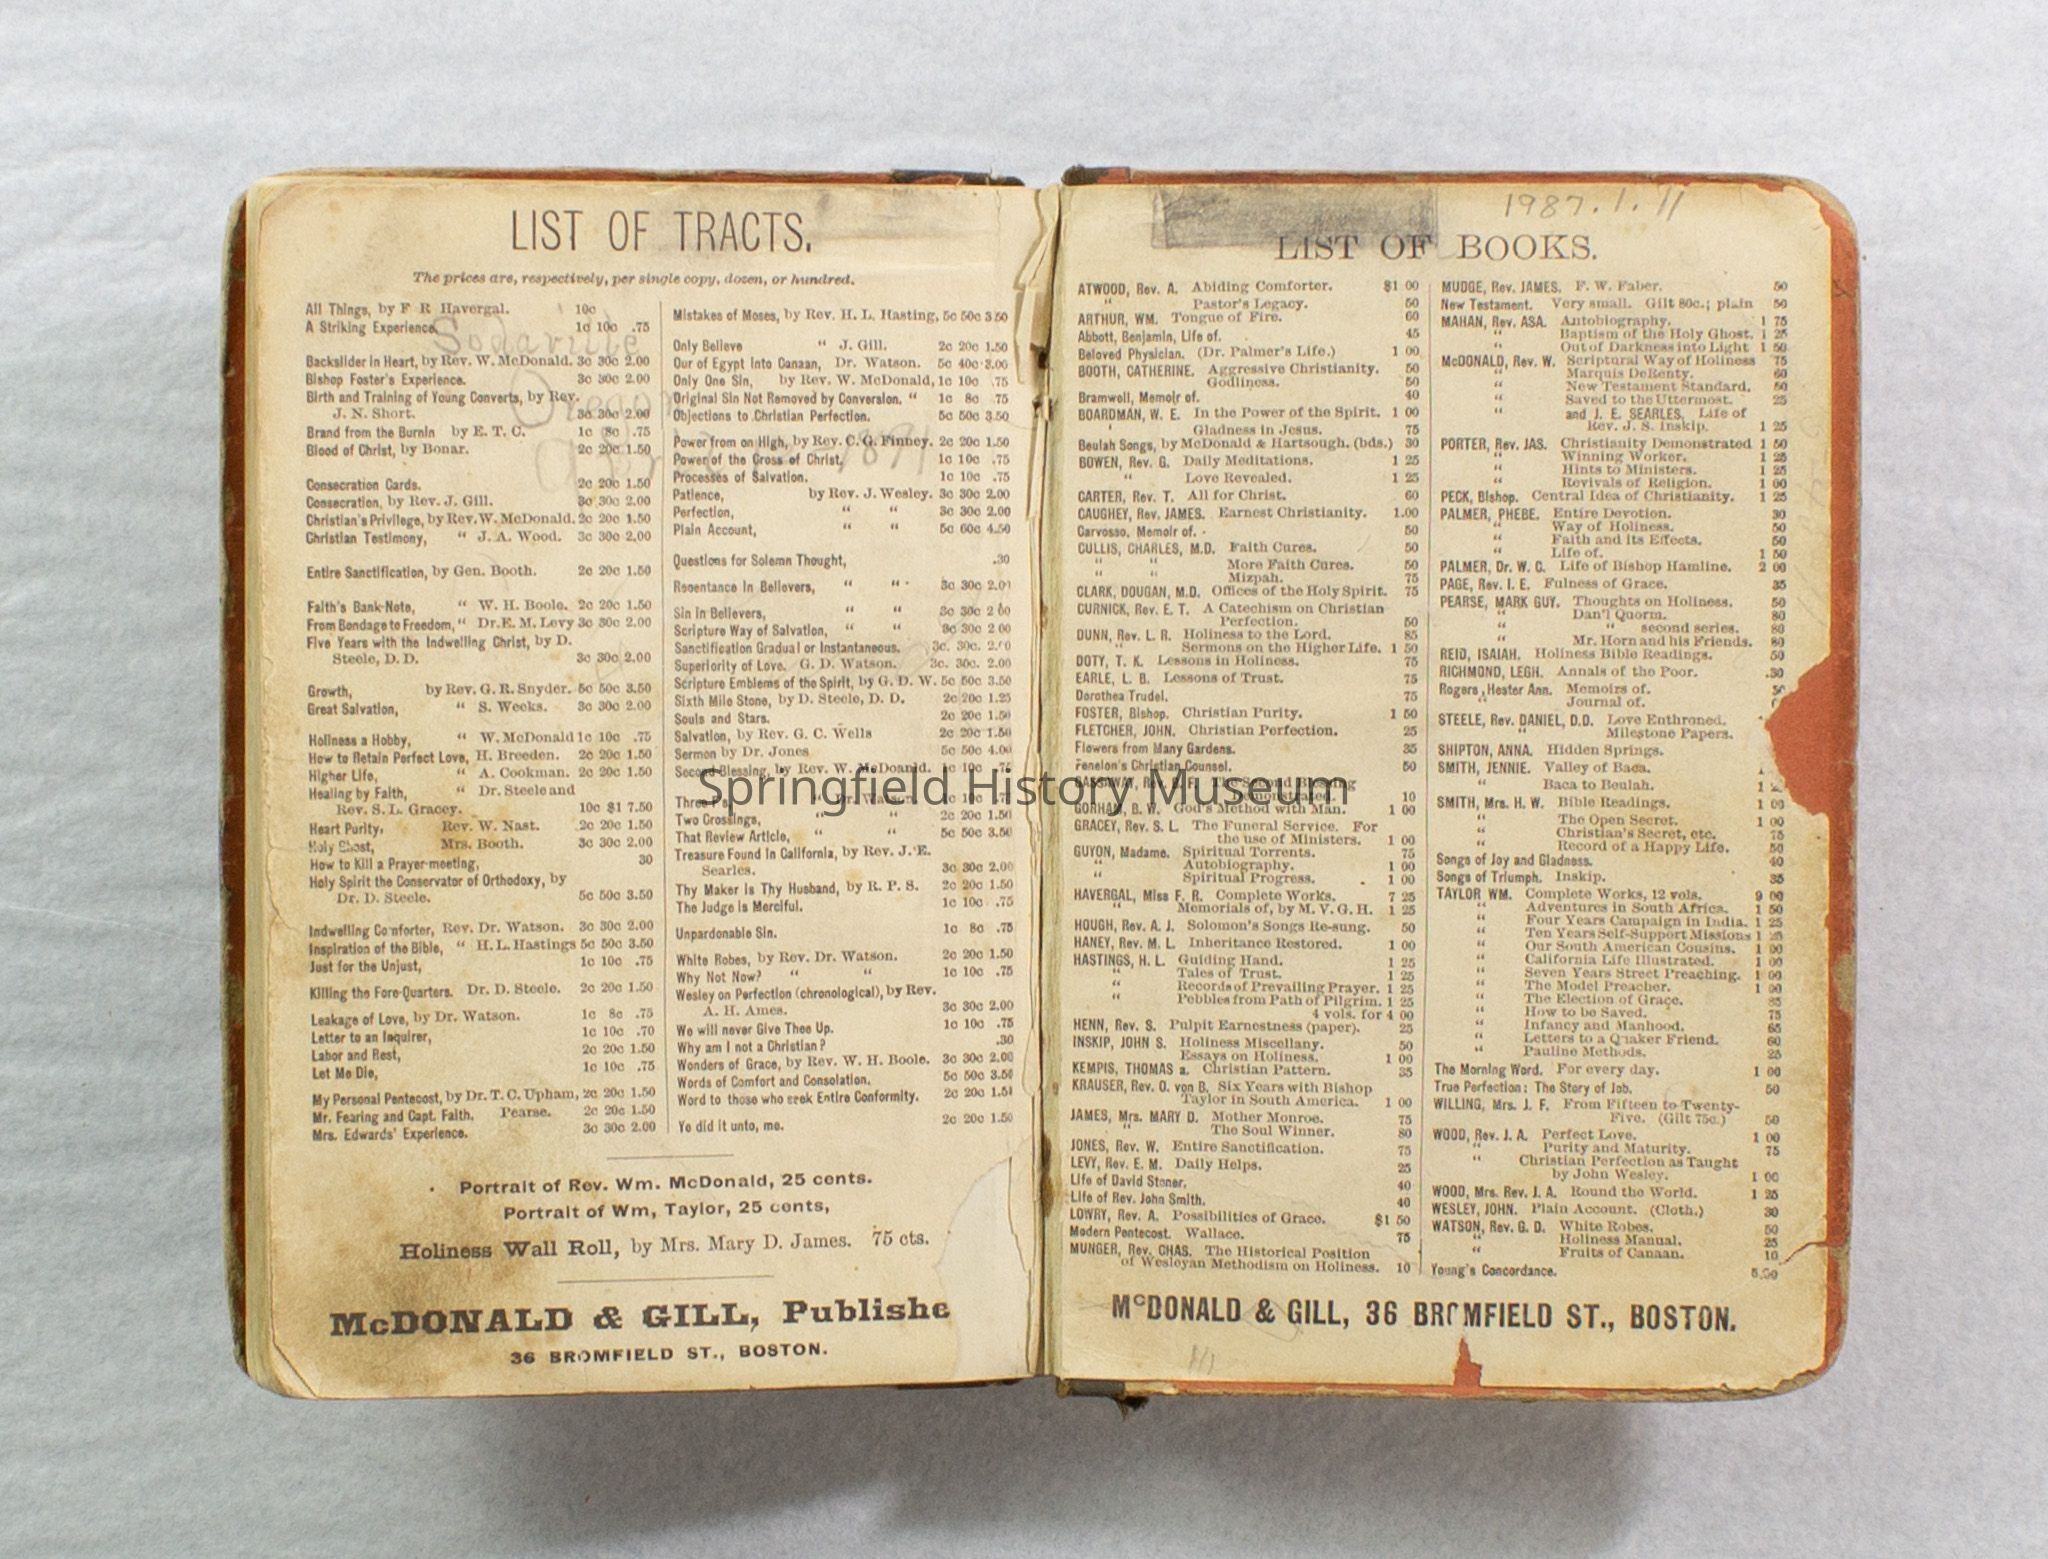 LIST OF TRACTS.
The prices are, respectively, per single copy, dozen, or hundred.
All Things, by F R Havergal. 10c
A Striking Experience. 1c 10c .75
Backslider in Heart, by Rev. W. McDonald. 3c 30c 2.00
Bishop Foster's Experience. 3c 30c 2.00
Birth and Training of Young Converts, by Rev.
J. N. Short. 3c 30c 2.00
Brand from the Burnin by E. T. C. 1c 8c .75
Blood of Christ, by Bonar. 2c 20c 1.50
Consecration Cards. 2c 20c 1.50
Consecration, by Rev. J. Gill. 3c 30c 2.00
Christian's Privilege, by Rev. W. McDonald. 2c 20c 1.50
Christian Testimony, " J. A. Wood. 3c 30c 2.00
Entire Sanctification, by Gen. Booth. 2c 20c 1.50
Faith's Bank-Note, " W. H. Boole. 2c 20c 1.50
From Bondage to Freedom, " Dr. E. M. Levy 3c 30c 2.00
Five Years with the Indwelling Christ, by D.
Steele, D. D. 3c 30c 2.00
Growth, by Rev. G. R. Snyder. 5c 50c 3.50
Great Salvation, " S. Weeks. 3c 30c 2.00
Holiness a Hobby, " W. McDonald 1c 10c .75
How to Retain Perfect Love, H. Breeden. 2c 20c 1.50
Higher Life, " A. Cookman. 2c 20c 1.50
Healing by Faith, " Dr. Steele and
Rev. S. L. Gracey. 10c $1 7.50
Heart Purity, Rev. W. Nast. 2c 20c 1.50
Holy Ghost, Mrs. Booth. 3c 30c 2.00
How to Kill a Prayer-meeting, 30
Holy Spirit the Conservator of Orthodoxy, by
Dr. D. Steele. 5c 50c 3.50
Indwelling Comforter, Rev. Dr. Watson. 3c 30c 2.00
Inspiration of the Bible, " H. L. Hastings 5c 50c 3.50
Just for the Unjust, 1c 10c .75
Killing the Fore-Quarters. Dr. D. Steele. 2c 20c 1.50
Leakage of Love, by Dr. Watson. 1c 8c .75
Letter to an Inquirer, 1c 10c .70
Labor and Rest, 2c 20c 1.50
Let Me Die, 1c 10c .75
My Personal Pentecost, by Dr. T. C. Upham, 2c 20c 1.50
Mr. Fearing and Capt. Faith. Pearse. 2c 20c 1.50
Mrs. Edwards' Experience. 3c 30c 2.00
Sodaville
Oregon
1891
Mistakes of Moses, by Rev. H. L. Hasting, 5c 50c 3 50
Only Believe " J. Gill. 2c 20c 1.50
Our of Egypt into Canaan, Dr. Watson. 5c 40c 3.00
Only One Sin, by Rev. W. McDonald, 1c 10c .75
Original Sin Not Removed by Conversion. " 1c 8c .75
Objections to Christian Perfection. 5c 50c 3.50
Power from on High, by Rev. C. G. Finney. 2c 20c 1.50
Power of the Cross of Christ, 1c 10c .75
Processes of Salvation. 1c 10c .75
Patience, by Rev. J. Wesley. 3c 30c 2.00
Perfection, " " 3c 30c 2.00
Plain Account, " " 5c 60c 4.50
Questions for Solemn Thought, .30
Repentance in Believers, " " 3c 30c
Sin in Believers, " " 3c 30c 2 00
Scripture Way of Salvation, " " 3c 30c 2 00
Sanctification Gradual or Instantaneous. 3c. 30c.
Superiority of Love. G. D. Watson. 3c. 30c. 2.00
Scripture Emblems of the Spirit, by G. D. W. 5c 50c 3.50
Sixth Mile Stone, by D. Steele, D. D. 2c 20c 1.25
Souls and Stars. 2c 20c 1.50
Salvation, by Rev. G. C. Wells 2c 20c 1.50
Sermon by Dr. Jones 5c 50c 4.00
Second Blessing, by Rev. W. McDoanld. 1c 10c
Three Dr. Watson 1c 10c
Two Crossings, " " 2c 20c 1.50
That Review Article, " " 5c 50c 3.50
Treasure Found in California, by Rev. J. E.
Searles. 3c 30c 2.00
Thy Maker Is Thy Husband, by R. P. S. 2c 20c 1.50
The Judge is Merciful. 1c 10c .75
Unpardonable Sin. 1c 8c .75
White Robes, by Rev. Dr. Watson. 2c 20c 1.50
Why Not Now? " " 1c 10c .75
Wesley on Perfection (chronological), by Rev.
A. H. Ames. 3c 30c 2.00
We will never Give Thee Up. 1c 10c .75
Why am I not a Christian? .30
Wonders of Grace, by Rev. W. H. Boole. 3c 30c 2.00
Words of Comfort and Consolation. 5c 50c 3.50
Word to those who seek Entire Conformity. 2c 20c
Ye did it unto, me. 2c 20c 1.50
Portrait of Rev. Wm. McDonald, 25 cents.
Portrait of Wm, Taylor, 25 cents,
Holiness Wall Roll, by Mrs. Mary D. James. 75 cts.
McDONALD & GILL, Publishe
36 BROMFIELD ST., BOSTON.
1987.1.11
LIST OF BOOKS.
ATWOOD, Rev. A. Abiding Comforter. $1 00
" Pastor's Legacy. 50
ARTHUR, WM. Tongue of Fire. 60
Abbott, Benjamin, Life of. 45
Beloved Physician. (Dr. Palmer's Life.) 1 00
BOOTH, CATHERINE. Aggressive Christianity. 50
Godliness. 50
Bramwell, Memoir of. 40
BOARDMAN, W. E. In the Power of the Spirit. 1 00
' Gladness in Jesus. 75
Beulah Songs, by McDonald & Hartsough. (bds.) 30
BOWEN, Rev. G. Daily Meditations. 1 25
" Love Revealed. 1 25
CARTER, Rev. T. All for Christ. 60
CAUGHEY, Rev. JAMES. Earnest Christianity. 1.00
Carvosso, Memoir of. 50
CULLIS, CHARLES, M.D. Faith Cures. 50
" " More Faith Cures. 50
" " Mizpah. 75
CLARK, DOUGAN, M.D. Offices of the Holy Spirit. 75
CURNICK, Rev. E. T. A Catechism on Christian
Perfection. 50
DUNN, Rev. L. R. Holiness to the Lord. 85
" Sermons on the Higher Life. 1 50
DOTY, T. K. Lessons in Holiness. 75
EARLE, L. B. Lessons of Trust. 75
Dorothea Trudel. 75
FOSTER, Bishop. Christian Purity. 1 50
FLETCHER, JOHN. Christian Perfection. 25
Flowers from Many Gardens. 35
Fenelon's Christian Counsel. 50
The Second Blessing
Demonstrated. 10
GORHAM, B. W. God's Method with Man. 1 00
GRACEY, Rev. S. L. The Funeral Service. For
the use of Ministers. 1 00
GUYON, Madame. Spiritual Torrents. 75
" Autobiography. 1 00
" Spiritual Progress. 1 00
HAVERGAL, Miss F. R. Complete Works. 7 25
" Memorials of, by M. V. G. H. 1 25
HOUGH, Rev. A. J. Solomon's Songs Re-sung. 50
HANEY, Rev. M. L. Inheritance Restored. 1 00
HASTINGS, H. L. Guiding Hand. 1 25
" Tales of Trust. 1 25
" Records of Prevailing Prayer. 1 25
" Pebbles from Path of Pilgrim. 1 25
4 vols. for 4 00
HENN, Rev. S. Pulpit Earnestness (paper). 25
INSKIP, JOHN S. Holiness Miscellany. 50
Essays on Holiness. 1 00
KEMPIS, THOMAS a. Christian Pattern. 35
KRAUSER, Rev. O. von B. Six Years with Bishop
Taylor in South America. 1 00
JAMES, Mrs. MARY D. Mother Monroe. 75
" The Soul Winner. 80
JONES, Rev. W. Entire Sanctification. 75
LEVY, Rev. E. M. Daily Helps. 25
Life of David Stoner. 40
Life of Rev. John Smith. 40
LOWRY, Rev. A. Possibilities of Grace. $1 50
Modern Pentecost. Wallace. 75
MUNGER, Rev. CHAS. The Historical Position
of Wesleyan Methodism on Holiness. 10
MUDGE, Rev. JAMES. F. W. Faber. 50
New Testament. Very small. Gilt 80c.; plain 50
MAHAN, Rev. ASA. Autobiography. 1 75
" Baptism of the Holy Ghost. 1 25
" Out of Darkness into Light 1 50
McDONALD, Rev. W. Scriptural Way of Holiness 75
" Marquis DeRenty. 60
" New Testament Standard. 50
" Saved to the Uttermost. 25
" and J. E. SEARLES, Life of
Rev. J. S. Inskip. 1 25
PORTER, Rev. JAS. Christianity Demonstrated 1 50
" Winning Worker. 1 25
" Hints to Ministers. 1 25
" Revivals of Religion. 1 00
PECK, Bishop. Central Idea of Christianity. 1 25
PALMER, PHEBE. Entire Devotion. 30
" Way of Holiness. 50
" Faith and its Effects. 50
" Life of. 1 50
PALMER, Dr. W. C. Life of Bishop Hamline. 2 00
PAGE, Rev. I. E. Fulness of Grace. 35
PEARSE, MARK GUY. Thoughts on Holiness. 50
" Dan'l Quorm. 80
" " second series. 80
" Mr. Horn and his Friends. 80
REID, ISAIAH. Holiness Bible Readings. 50
RICHMOND, LEGH. Annals of the Poor. .30
Rogers, Hester Ann. Memoirs of.
Journal of.
STEELE, Rev. DANIEL, D.D. Love Enthroned.
" Milestone Papers.
SHIPTON, ANNA. Hidden Springs.
SMITH, JENNIE. Valley of Baca.
" Baca to Beulah.
SMITH, Mrs. H. W. Bible Readings. 1 00
" The Open Secret. 1 00
" Christian's Secret, etc. 75
" Record of a Happy Life. 50
Songs of Joy and Gladness. 40
Songs of Triumph. Inskip. 35
TAYLOR WM. Complete Works, 12 vols. 9 00
" Adventures in South Africa. 1 50
" Four Years Campaign in India. 1 25
" Ten Years Self-Support Missions 1
" Our South American Cousins. 1 00
" California Life Illustrated. 1 00
" Seven Years Street Preaching. 1 00
" The Model Preacher. 1 00
" The Election of Grace.
" How to be Saved. 75
" Infancy and Manhood. 65
" Letters to a Quaker Friend. 60
" Pauline Methods. 25
The Morning Word. For every day. 1 00
True Perfection: The Story of Job. 50
WILLING, Mrs. J. F. From Fifteen to Twenty-
Five. (Gilt 75c.) 50
WOOD, Rev. J. A. Perfect Love. 1 00
" Purity and Maturity. 75
" Christian Perfection as Taught
by John Wesley. 1 00
WOOD, Mrs. Rev. J. A. Round the World. 1 25
WESLEY, JOHN. Plain Account. (Cloth.) 30
WATSON, Rev. G. D. White Robes. 50
" Holiness Manual. 25
" Fruits of Canaan. 10
Young's Concordance.
McDONALD & GILL, 36 BROMFIELD ST., BOSTON.
Springfield History Museum